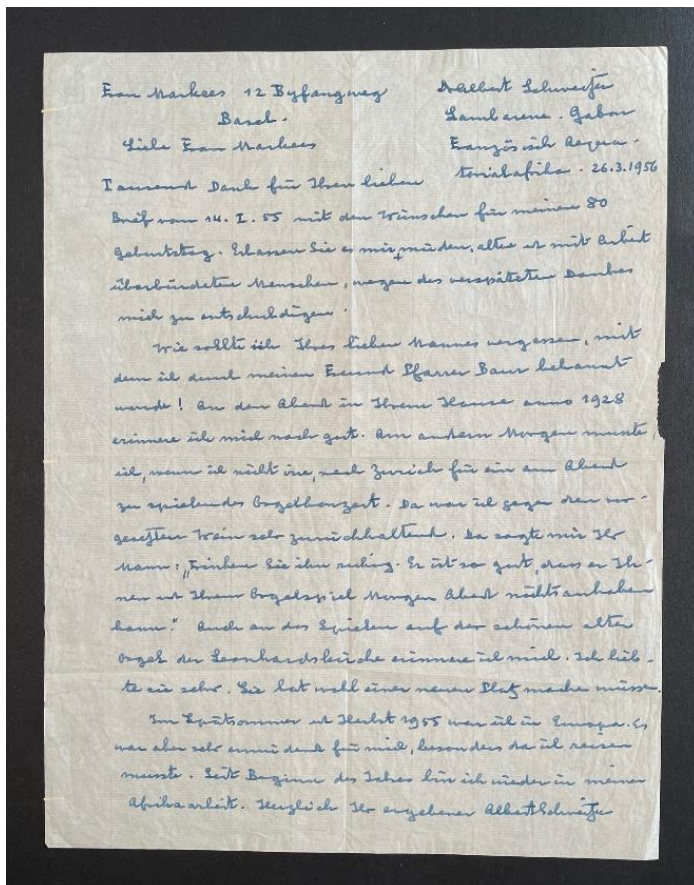 Frau Markees 12 Byfangweg
Basel.
Dr Albert Schweitzer
Lambarene. Gabon
Französisch Aequa-
torialafrika. 26.3.1956
Liebe Frau Markees
Tausend Dank für Ihren lieben
Brief vom 14. I. 55 mit den Wünschen für meinen 80
Geburtstag. Erlassen Sie es mir, müden, alten u mit Arbeit
überbürdeten Menschen, wegen des verspäteten Dankes
mich zu entschuldigen.
Wie sollte ich Ihres lieben Mannes vergessen, mit
dem ich durch meinen Freund Pfarrer Baur bekannt
wurde! An den Abend in Ihrem Hause anno 1928
erinnere ich mich noch gut. Am andern Morgen musste
ich, wenn ich nicht irre, nach Zürich für ein am Abend
zu spielendes Orgelkonzert. Da war ich gegen den vor-
gesetzten Wein sehr zurückhaltend. Da sagte mir Ihr
Mann: „Trinken Sie ihn ruhig. Er ist so gut, dass er Ih-
nen u Ihrem Orgelspiel Morgen Abend nichts anhaben
kann." Auch an das Spielen auf der schönen alten
Orgel der Leonhardskirche erinnere ich mich. Ich lieb-
te sie sehr. Sie hat wohl einer neuen Platz machen müssen.
Im Spätsommer u Herbst 1955 war ich in Europa. Es
war aber sehr ermüdend für mich, besonders da ich reisen
musste. Seit Beginn des Jahres bin ich wieder in meiner
Afrikaarbeit. Herzlich Ihr ergebener Albert Schweitzer